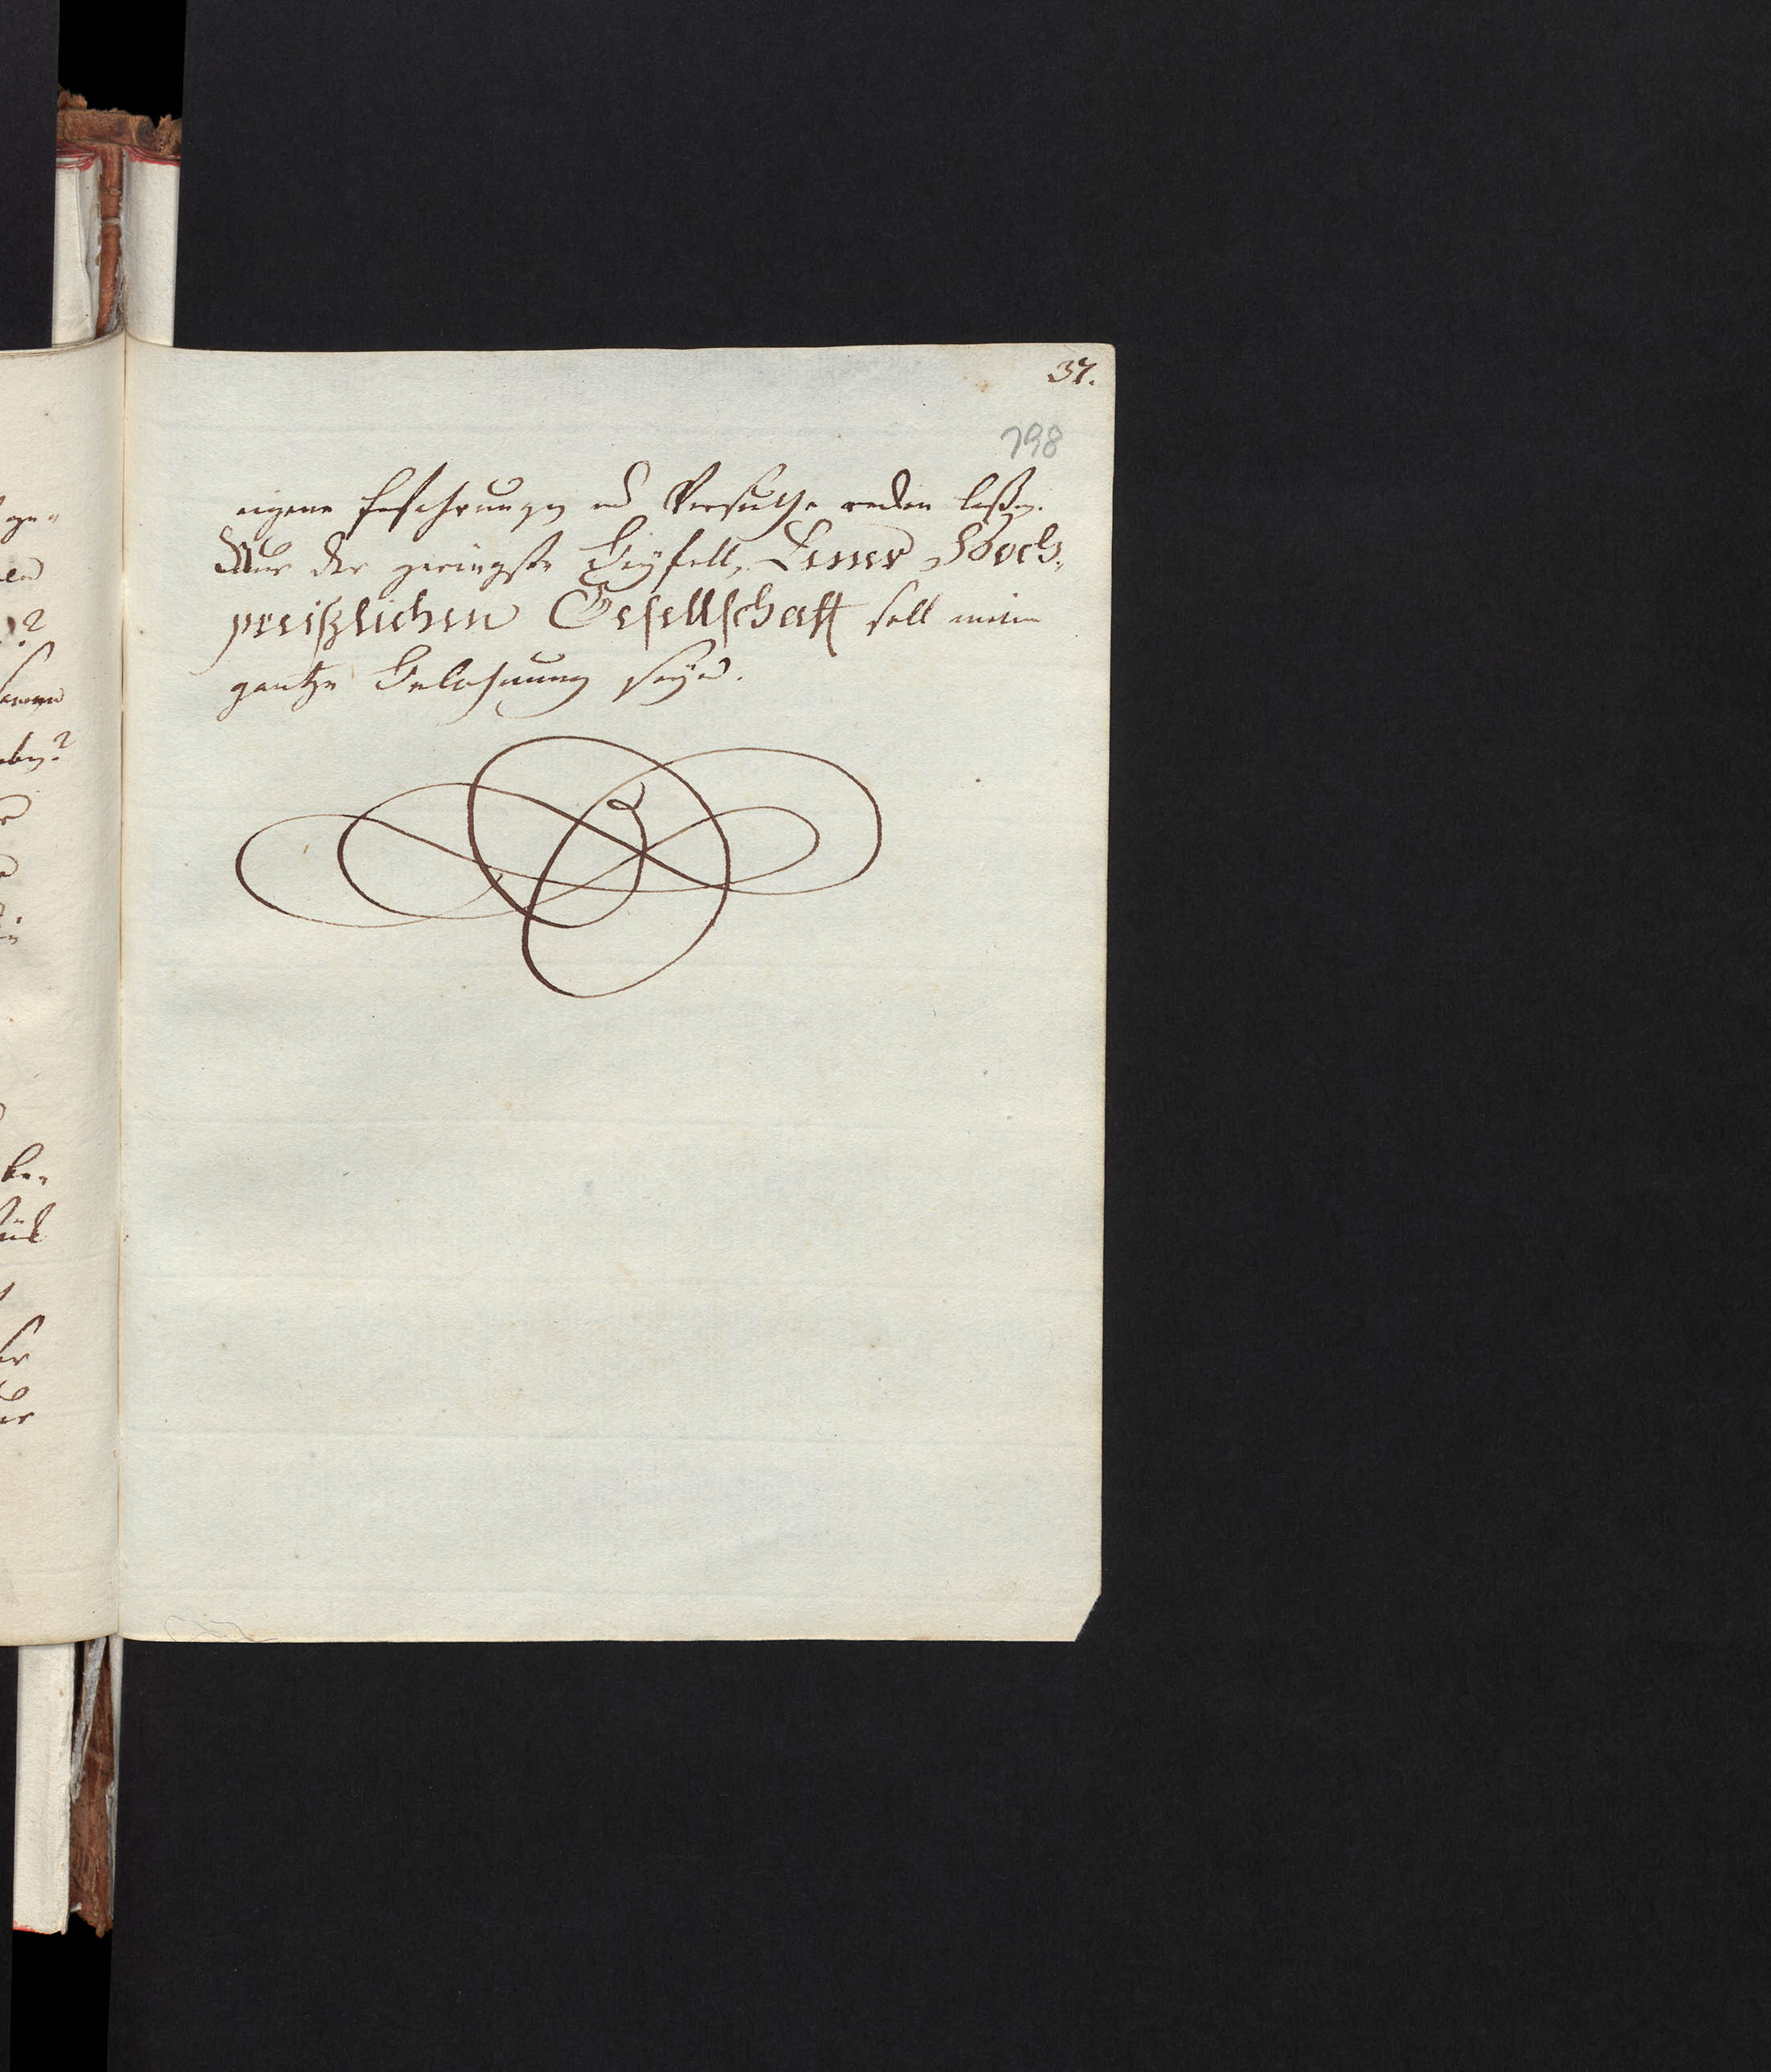 37.
798
eigene Erfahrungen und Versuche reden laßen.
Nur der geringste Beyfall, Einer Hoch-
preißlichen Gesellschafft soll meine
gantze Belohnung seyn.